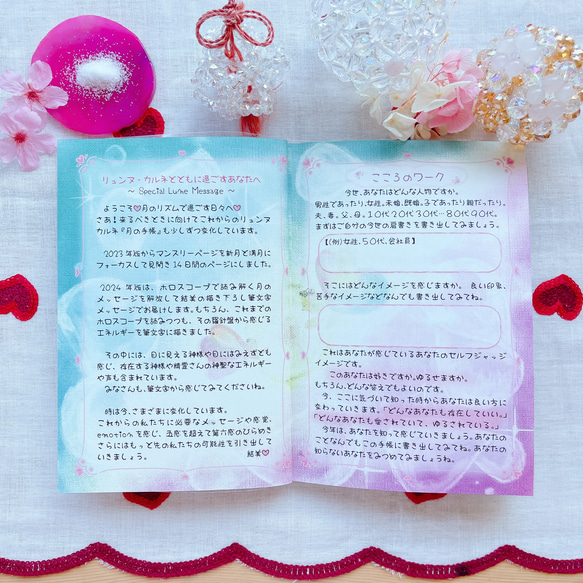 リュンヌ・カルネとともに過ごすあなたへ
～ Special Lune Message ～
ようこそ♡月のリズムで過ごす日々へ♡
さあ！来るべきときに向けてこれからのリュンヌ
カルネ『月の手帳』も少しずつ変化しています。
2023年版からマンスリーページを新月と満月に
フォーカスして見開き14日間のページにしました。
2024年版は、ホロスコープで読み解く月の
メッセージを解放して結美の描き下ろし筆文字
メッセージでお届けします。もちろん、これまでの
ホロスコープを読みつつも、その羅針盤から感じる
エネルギーを筆文字に描きました。
その中には、目に見える神様や目にはみえずとも
感じ、存在する神様や精霊さんの神聖なエネルギー
や声も含まれています。
みなさんも、筆文字から感じてみてくださいね。
時は今、さまざまに変化しています。
これからの私たちに必要なメッセージや感覚、
emotionを感じ、五感を超えて第六感のひらめき
さらにはもっと先の私たちの可能性を引き出して
いきましょう。
結美♡
こころのワーク
今世、あなたはどんな人物ですか。
男性であったり、女性。未婚、既婚。子であったり親だったり。
夫、妻。父、母。10代20代30代…80代90代。
まずはご自分の今世の肩書を書き出してみましょう。
【(例)女性、50代、会社員】
そこにはどんなイメージを感じますか。 良い印象、
苦手なイメージなどなんでも書き出してみてね。
これはあなたが感じているあなたのセルフジャッジ
イメージです。
このあなたは好きですか。ゆるせますか。
もちろん、どんな答えでもよいのです。
今、ここに気づいて知った時からあなたは良い方に
変わっていきます。「どんなあなたも存在していい。」
「どんなあなたも愛されていて、ゆるされている。」
今年は、あなたを知って感じていきましょう。あなたの
ことなんでもこの手帳に書き出してみてね。あなたの
知らないあなたをみつめてみましょうね。